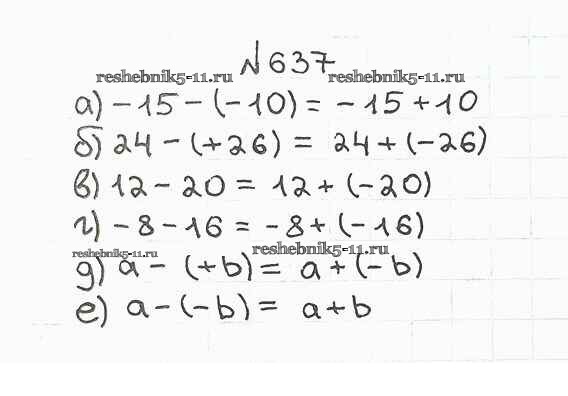 №637
reshebnik5-11.ru reshebnik5-11.ru
а) -15 - (-10) = -15 + 10
б) 24 - (+26) = 24 + (-26)
в) 12 - 20 = 12 + (-20)
г) -8 - 16 = -8 + (-16)
reshebnik5-11.ru reshebnik5-11.ru
д) a - (+b) = a + (-b)
е) a - (-b) = a + b